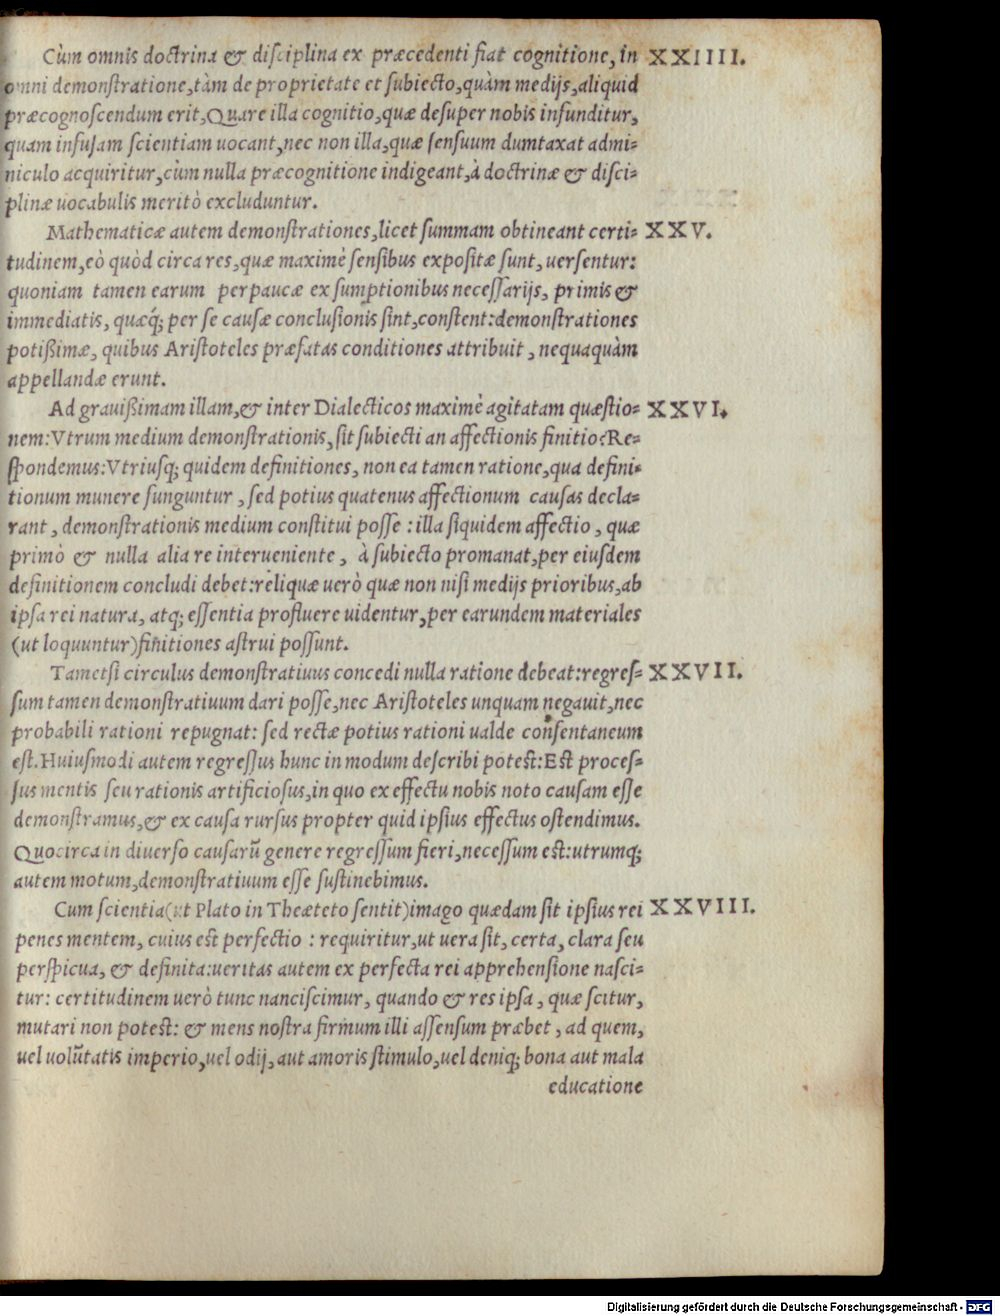 Cùm omnis doctrina & disciplina ex præcedenti fiat cognitione, in XXIIII.
omni demonstratione, tàm de proprietate et subiecto, quàm medijs, aliquid
præcognoscendum erit, Quare illa cognitio, quæ desuper nobis infunditur,
quam infusam scientiam uocant, nec non illa, quæ sensuum dumtaxat admi-
niculo acquiritur, cùm nulla præcognitione indigeant, à doctrinæ & disci-
plinæ uocabulis meritò excluduntur.
Mathematicæ autem demonstrationes, licet summam obtineant certi- XXV.
tudinem, eò quòd circa res, quæ maximè sensibus expositæ sunt, uersentur:
quoniam tamen earum perpaucæ ex sumptionibus necessarijs, primis &
immediatis, quæq; per se causæ conclusionis sint, constent: demonstrationes
potißimæ, quibus Aristoteles præfatas conditiones attribuit, nequaquàm
appellandæ erunt.
Ad grauißimam illam, & inter Dialecticos maximè agitatam quæstio- XXVI.
nem: Vtrum medium demonstrationis, sit subiecti an affectionis finitio? Re-
spondemus: Vtriusq; quidem definitiones, non ea tamen ratione, qua defini-
tionum munere funguntur, sed potius quatenus affectionum causas decla-
rant, demonstrationis medium constitui posse: illa siquidem affectio, quæ
primò & nulla alia re interueniente, à subiecto promanat, per eiusdem
definitionem concludi debet: reliquæ uerò quæ non nisi medijs prioribus, ab
ipsa rei natura, atq; essentia profluere uidentur, per earundem materiales
(ut loquuntur) finitiones astrui possunt.
Tametsi circulus demonstratiuus concedi nulla ratione debeat: regres- XXVII.
sum tamen demonstratiuum dari posse, nec Aristoteles unquam negauit, nec
probabili rationi repugnat: sed rectæ potius rationi ualde consentaneum
est. Huiusmodi autem regressus hunc in modum describi potest: Est proces-
sus mentis seu rationis artificiosus, in quo ex effectu nobis noto causam esse
demonstramus, & ex causa rursus propter quid ipsius effectus ostendimus.
Quocirca in diuerso causarũ genere regressum fieri, necessum est: utrumq;
autem motum, demonstratiuum esse sustinebimus.
Cum scientia (ut Plato in Theæteto sentit) imago quædam sit ipsius rei XXVIII.
penes mentem, cuius est perfectio: requiritur, ut uera sit, certa, clara seu
perspicua, & definita: ueritas autem ex perfecta rei apprehensione nasci-
tur: certitudinem uerò tunc nanciscimur, quando & res ipsa, quæ scitur,
mutari non potest: & mens nostra firmum illi assensum præbet, ad quem,
uel uolũtatis imperio, uel odij, aut amoris stimulo, uel deniq; bona aut mala
educatione
Digitalisierung gefördert durch die Deutsche Forschungsgemeinschaft - DFG